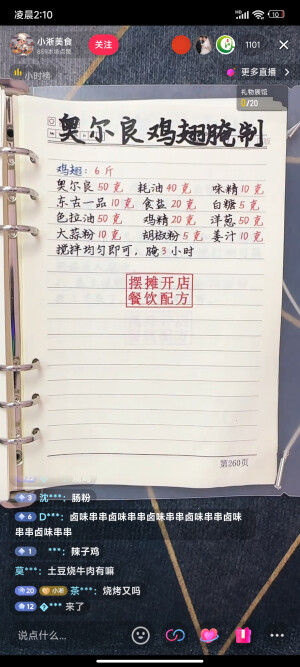 凌晨2:10
10
小淅美食
659本场点赞
关注
1101
小时榜
更多直播
礼物展馆
0/20
奥尔良鸡翅腌制
鸡翅：6斤
奥尔良50克 耗油40克 味精10克
东古一品10克 食盐20克 白糖5克
色拉油50克 鸡精20克 洋葱50克
大蒜粉10克 胡椒粉5克 姜汁10克
搅拌均匀即可，腌3小时
摆摊开店
餐饮配方
第260页
3 沈***：肠粉
6 D***：卤味串串卤味串串卤味串串卤味串串卤味
串串卤味串串
1 ***：辣子鸡
莫***：土豆烧牛肉有嘛
20 小淅 茶***：烧烤又吗
12 ***来了
说点什么...